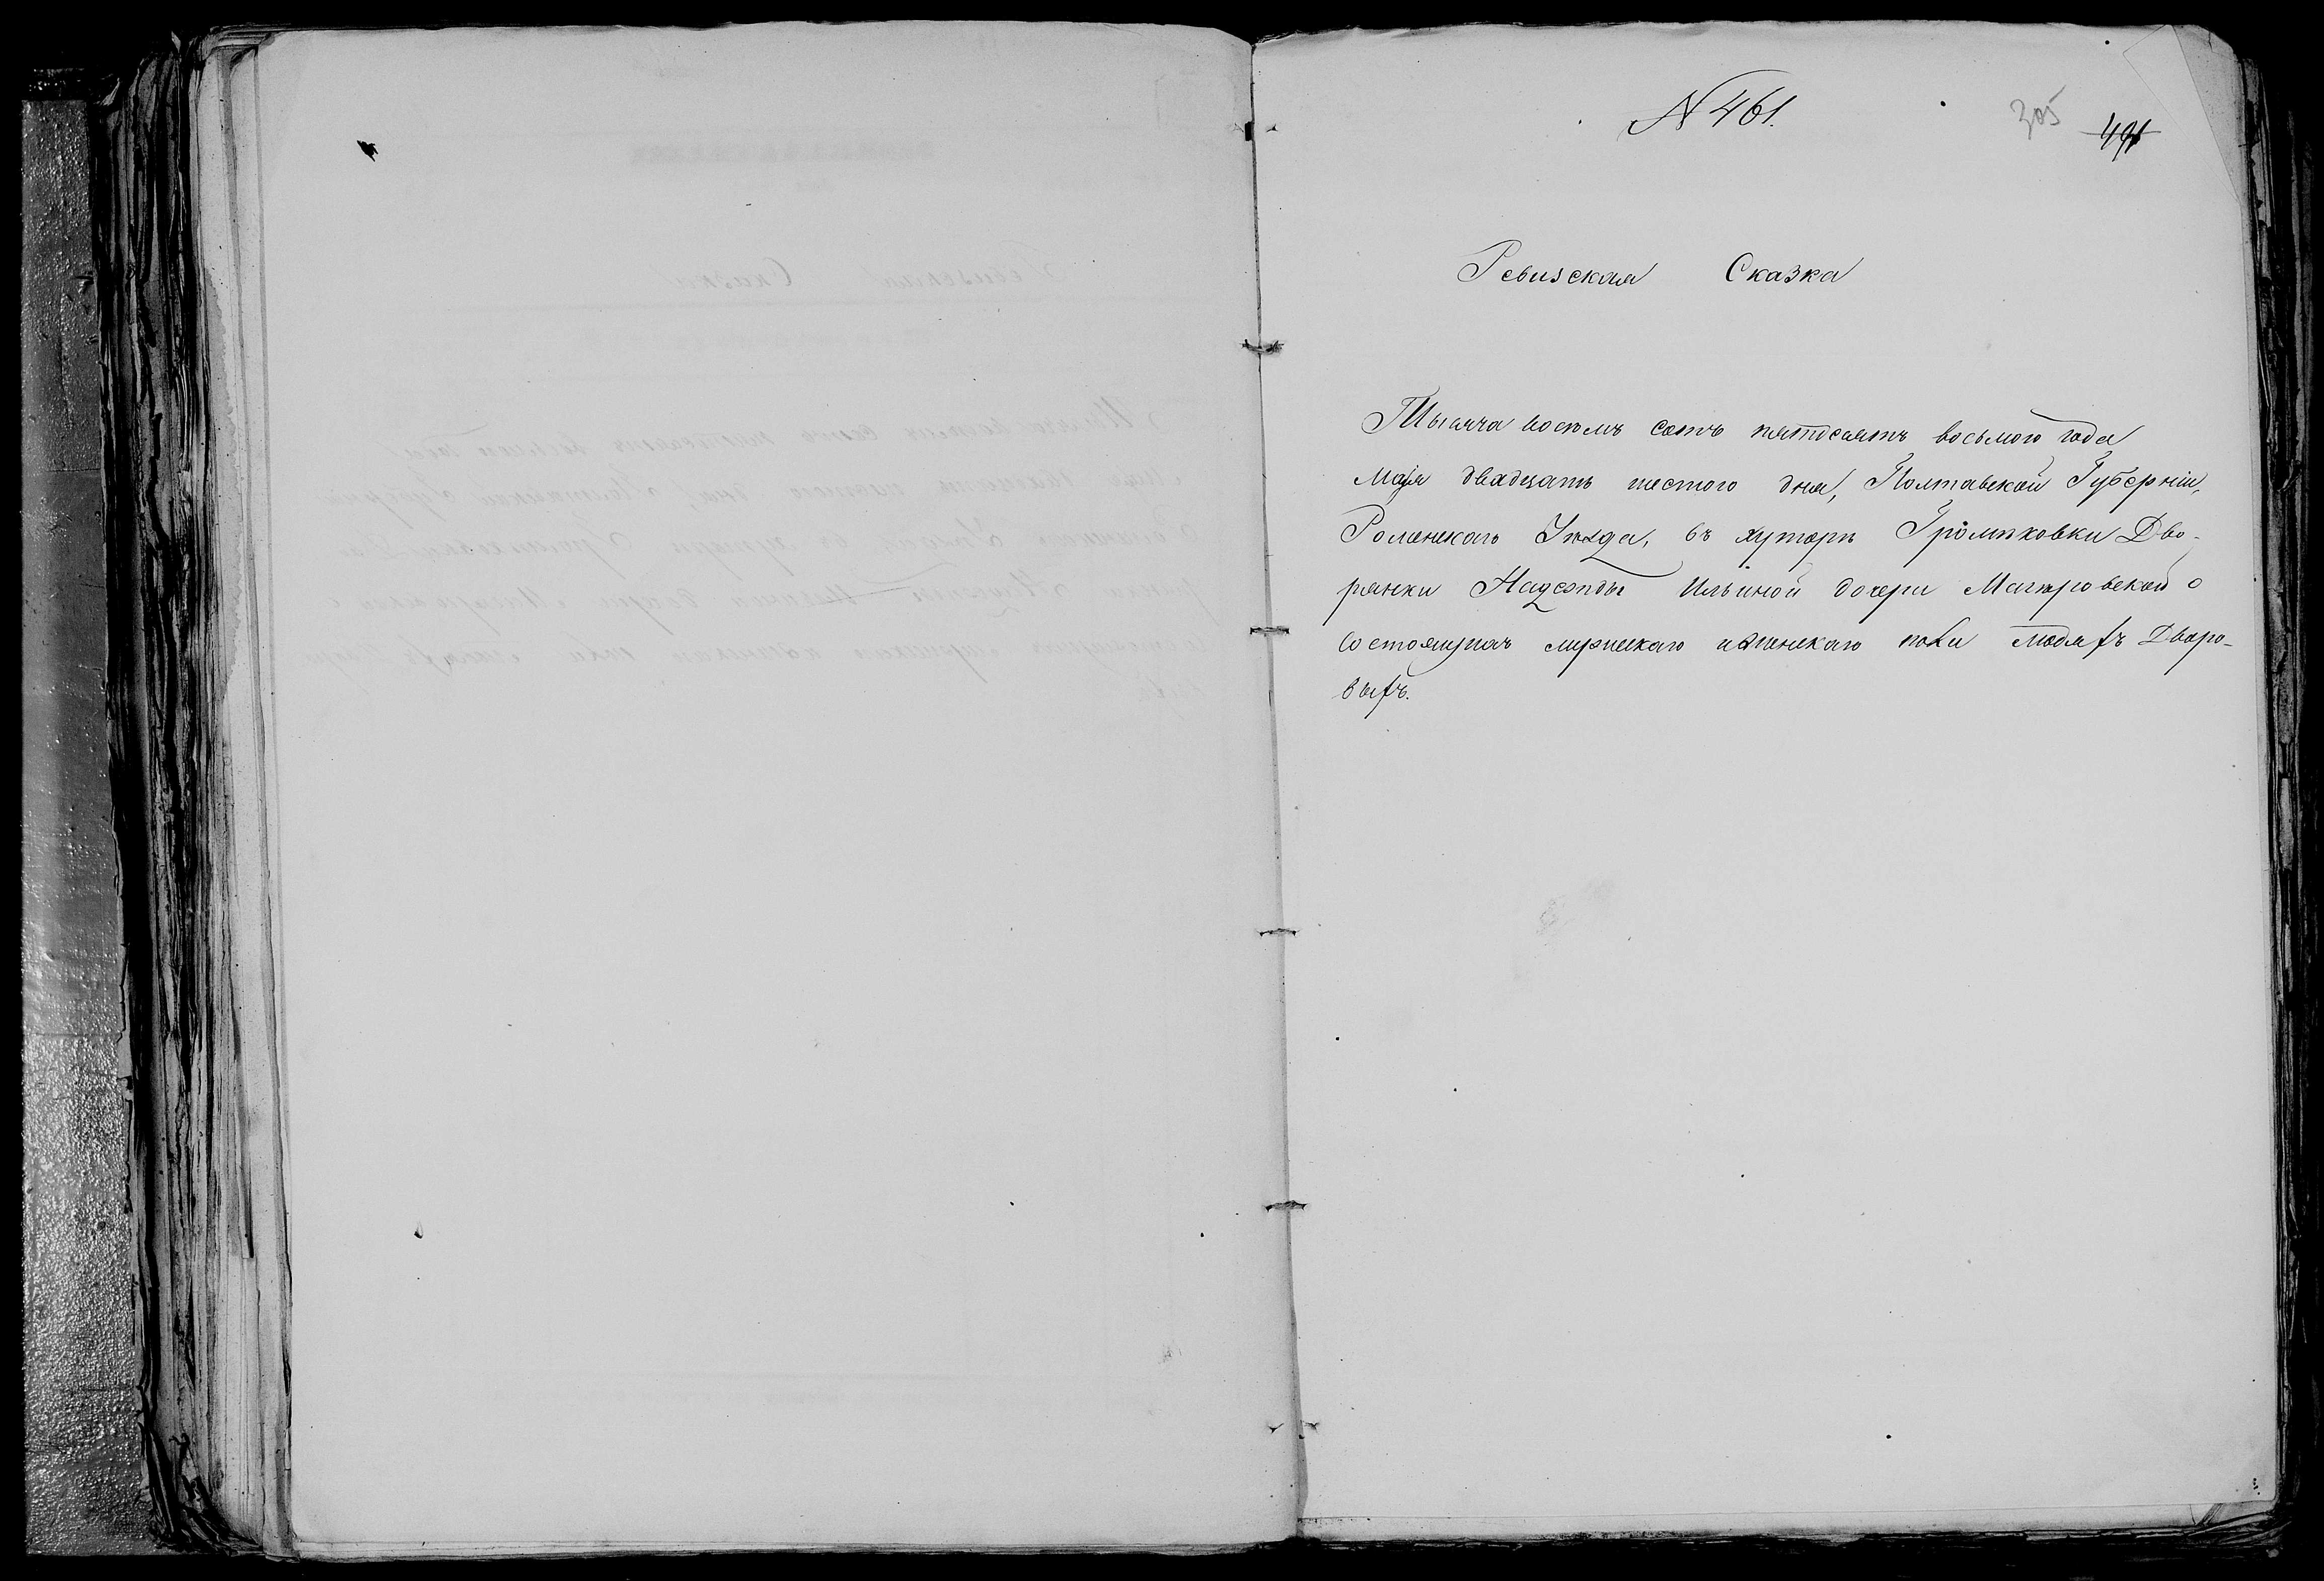 N 461.
305
491
Ревизская Сказка
Тысяча восемъ сотъ пятдесятъ восьмого года
Мая двадцать шестого дня, Полтавской Губерніи,
Роменскаго Уѣзда, въ хуторѣ Громѣковки Дво-
рянки Надежды Ильиной дочери Мачеровской о
состоящихъ мужескаго и женскаго пола людяхъ Дворо-
выхъ.